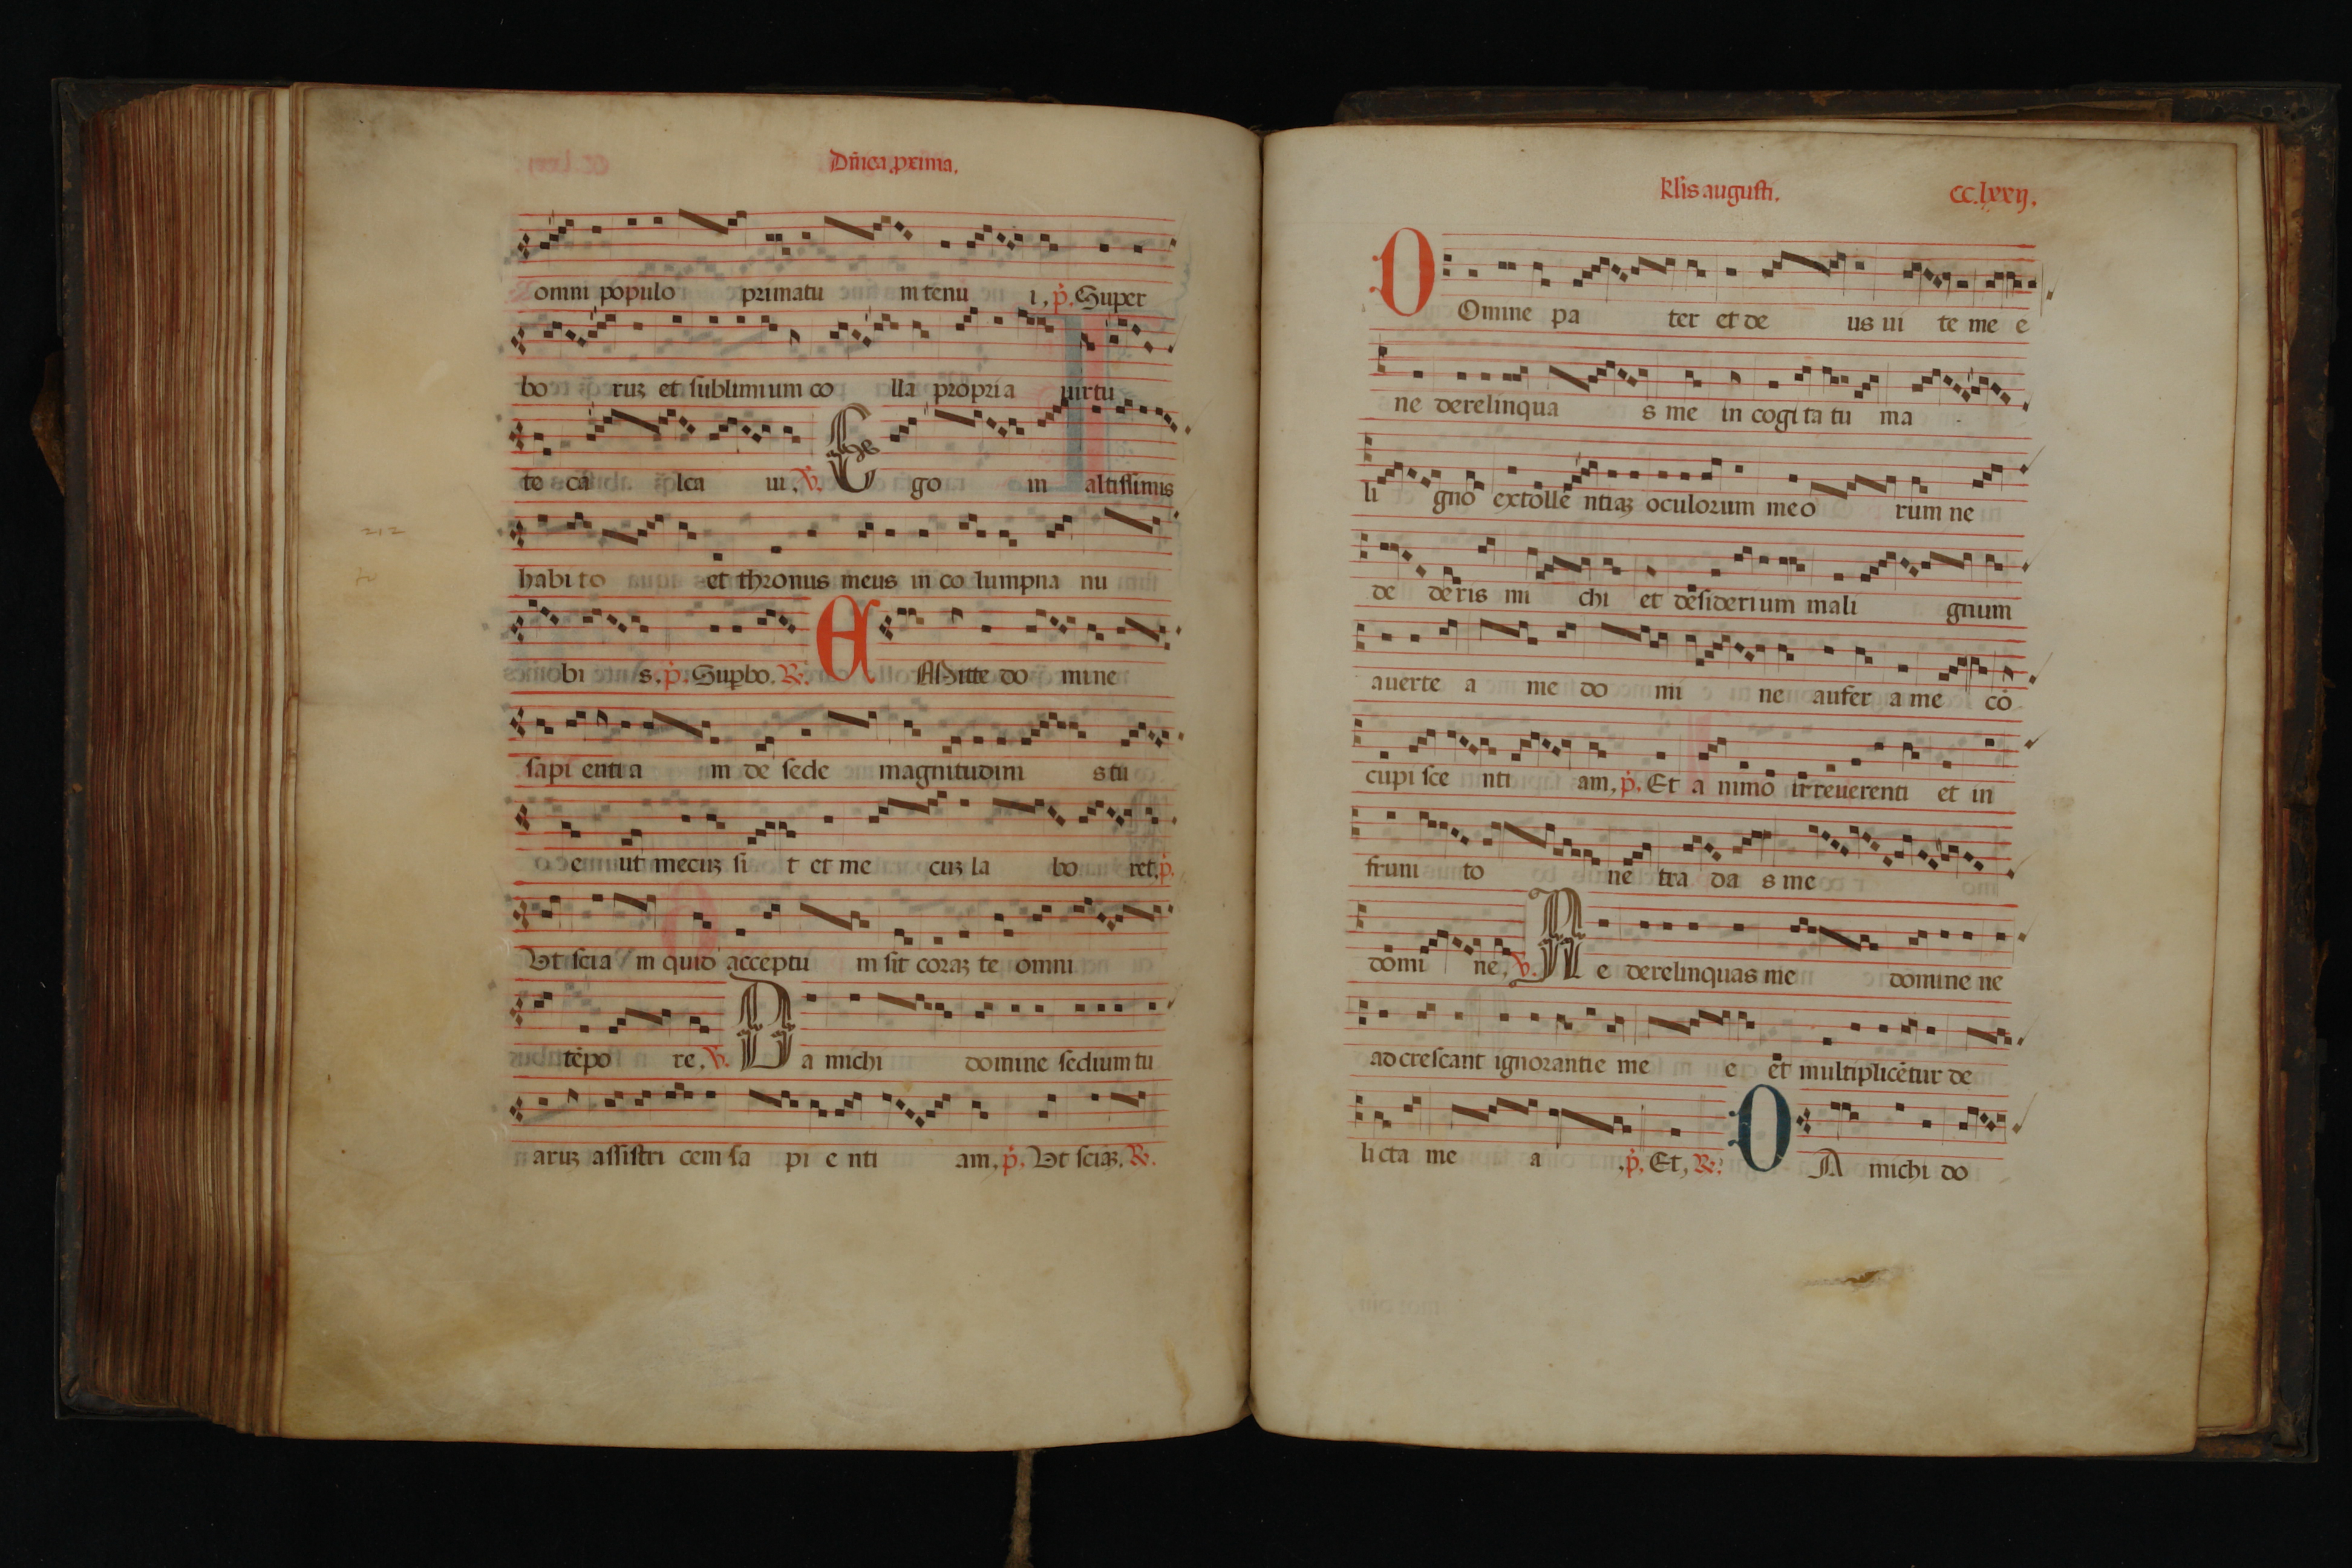 Dñica prima.
omni populo primatu m tenu i, p. Super
bo ruʒ et sublimium co lla propria uirtu
te ca lca ui, V. Ego in altissimis
habi to et thronus meus in co lumpna nu
bi s. p. Supbo. R. EMitte do mine
sapi enti a m de sede magnitudini s tu
e ut mecuʒ si t et me cuʒ la bo ret. p.
Ut scia m quid acceptu m sit coraʒ te omni
tēpo re, V. Da michi domine sedium tu
aruʒ assistri cem sa pi e nti am, p. Ut sciaʒ. R.
klis augusti. cc.lxxij.
DOmine pa ter et de us ui te me e
ne derelinqua s me in cogi ta tu ma
li gno extolle ntiaʒ oculorum meo rum ne
de deris mi chi et desiderium mali gnum
auerte a me do mi ne aufer a me cō
cupi sce nti am, p. Et a nimo irreuerenti et in
fruni to ne tra da s me
domi ne, V. Ne derelinquas me domine ne
adcrescant ignorantie me e et multiplicētur de
licta me a .p. Et, R. DA michi do